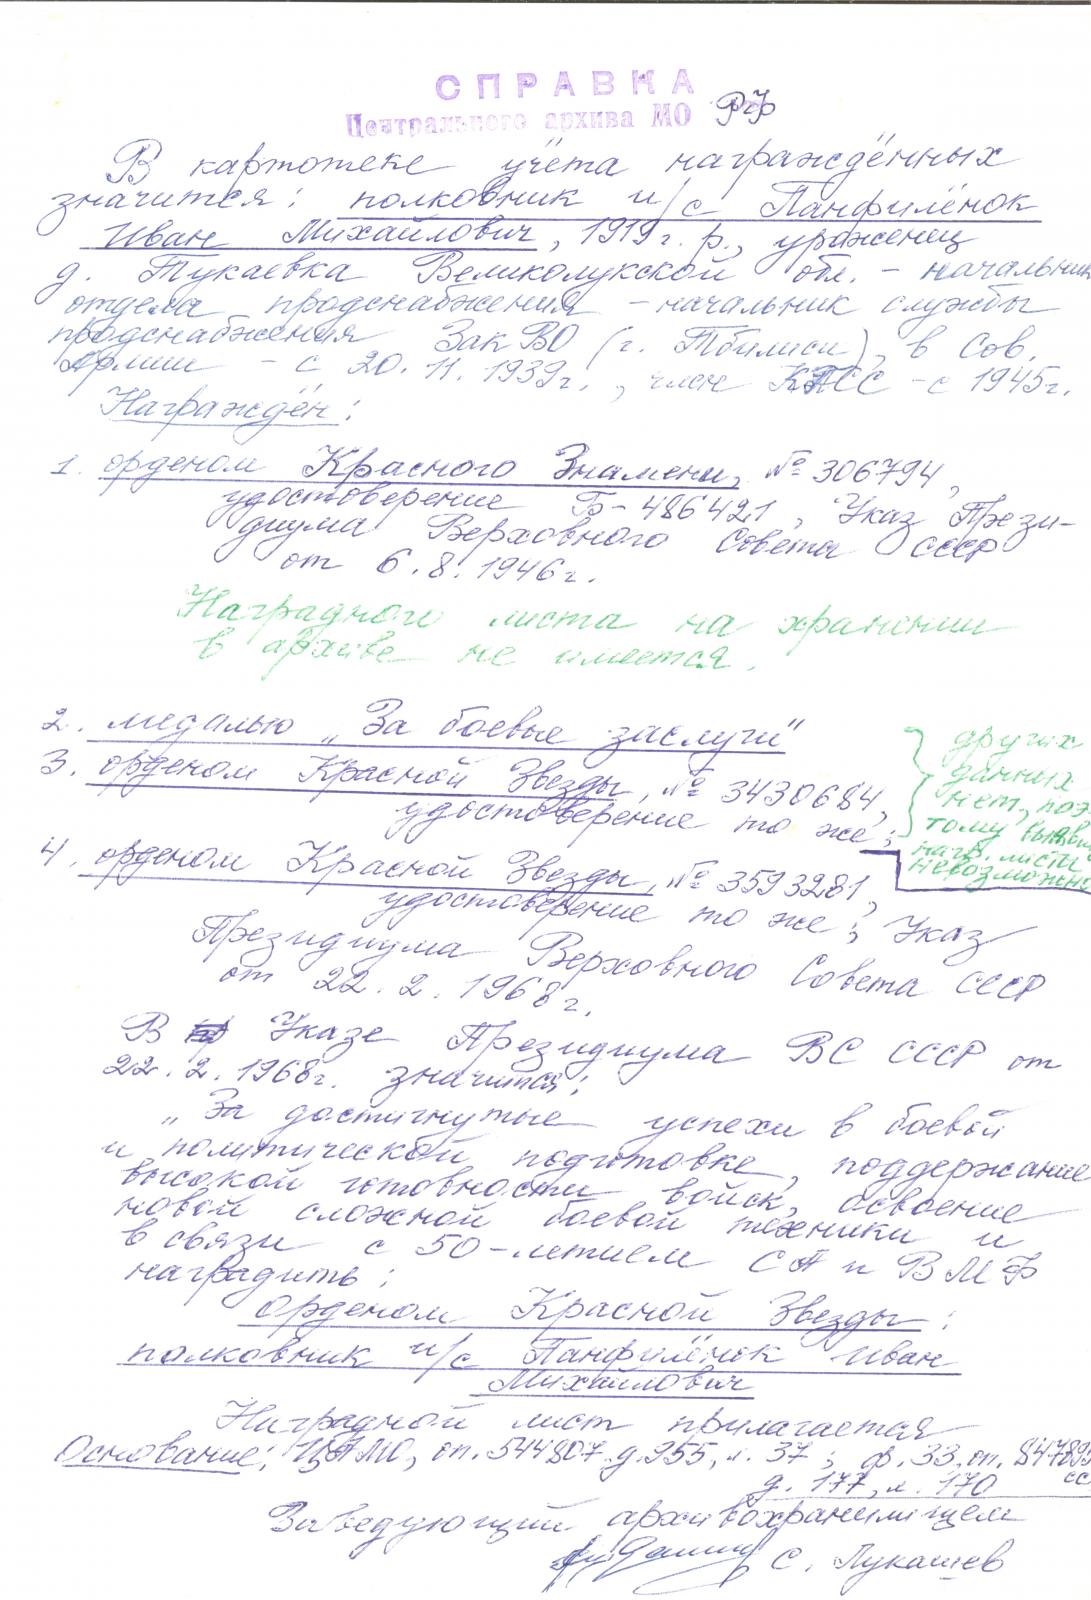 СПРАВКА
Центрального архива МО РФ
В картотеке учёта награждённых
значится: полковник и/с Панфилёнок
Иван Михайлович, 1919 г. р., уроженец
д. Тукаевка Великолукской обл. - начальник
отдела продснабжения - начальник службы
продснабжения ЗакВО (г. Тбилиси), в Сов.
Армии - с 20.11.1939г., член КПСС - с 1945г.
Награждён:
1. орденом Красного Знамени, № 306794,
удостоверение Б-486421, Указ Прези-
диума Верховного Совета СССР
от 6.8.1946г.
Наградного листа на хранении
в архиве не имеется.
2. медалью „За боевые заслуги"
3. орденом Красной Звезды, № 3430684,
удостоверение то же;
других
данных
нет, поэ-
тому выяви
нагр. листы
невозможно
4. орденом Красной Звезды, № 3593281,
удостоверение то же; Указ
Президиума Верховного Совета СССР
от 22.2.1968г.
В Указе Президиума ВС СССР от
22.2.1968г. значится:
„За достигнутые успехи в боевой
и политической подготовке, поддержание
высокой готовности войск, освоение
новой сложной боевой техники и
в связи с 50-летием СА и ВМФ
наградить:
орденом Красной Звезды:
полковник и/с Панфилёнок Иван
Михайлович
Наградной лист прилагается
Основание: ЦАМО, оп. 544807. д. 955, л. 37; ф. 33, оп. 847895
сс
д. 177, л. 170
Заведующий архивохранилищем
С. Лукашев